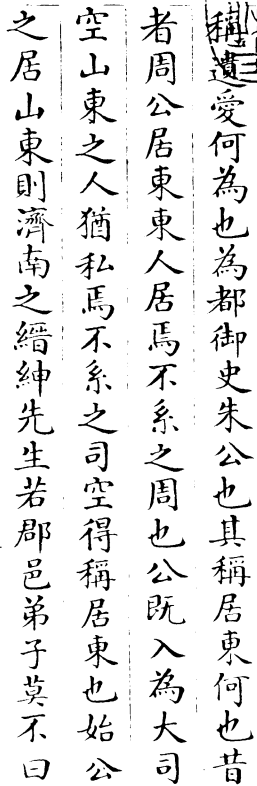 稱遺愛何為也為都御史朱公也其稱居東何也昔
者周公居東東人居焉不系之周也公既入為大司
空山東之人猶私焉不系之司空得稱居東也始公
之居山東則濟南之縉紳先生若郡邑弟子莫不曰